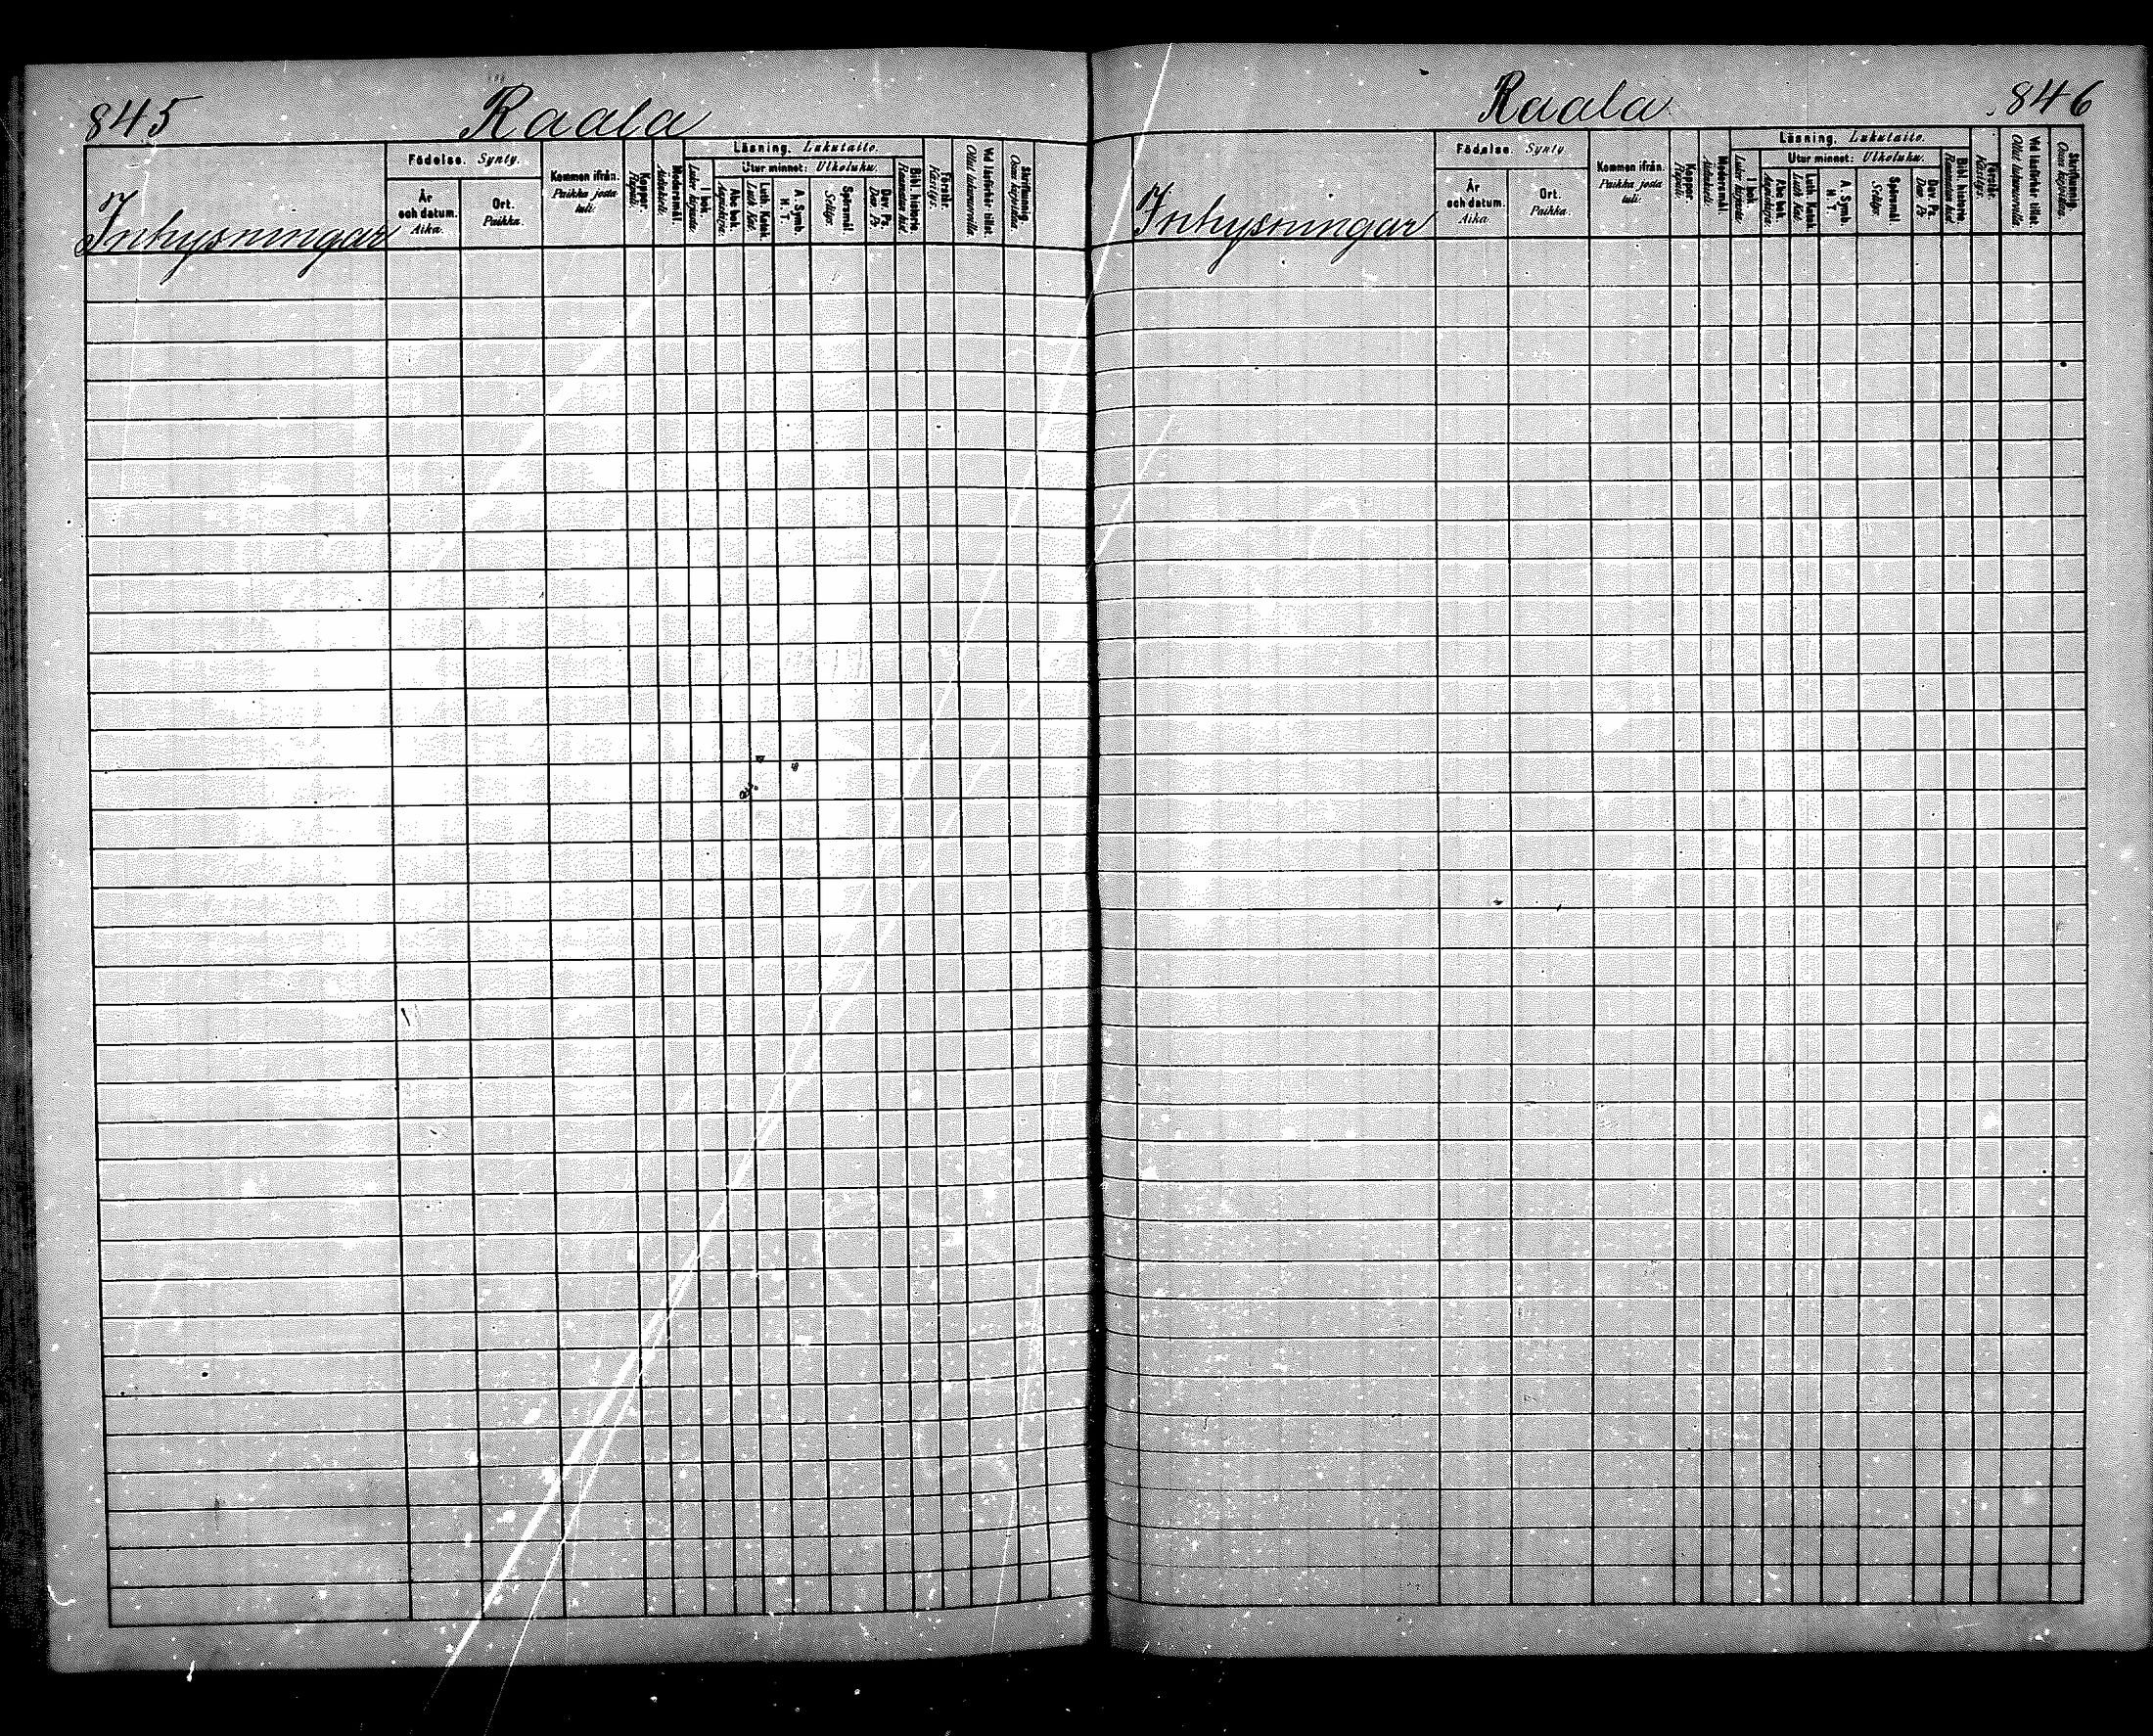 845
Raala
Inhysningar
Födelse. Synty.
År och datum. Aika.
Ort. Paikka.
Kommen ifrån. Paikka josta tuli.
Koppor. Rupuli.
Modersmål. Äidinkieli.
Läsning. Lukutaito.
I bok. Luku kirjasta.
Utur minnet: Ulkoluku.
Abc bok. Aapiskirja.
Luth. Katek. Luth. Kat.
A. Symb. H. T.
Spörsmål. Selitys.
Dav. Ps. Dav. Ps.
Bibl. historia. Raamatun hist.
Förstår. Käsitys.
Vid läsförhör tillst. Ollut lukuvuorolla.
Skrifkunnig. Osaa kirjoittaa.
Raala
846
Inhysningar
Födelse. Synty.
År och datum. Aika
Ort. Paikka.
Kommen ifrån. Paikka josta tuli.
Koppor. Rupuli.
Modersmål. Äidinkieli.
Läsning. Lukutaito.
I bok. Luku kirjasta.
Utur minnet: Ulkoluku.
Abc bok. Aapiskirja.
Luth. Katek. Luth. Kat.
A. Symb. H. T.
Spörsmål. Selitys.
Dav. Ps. Dav. Ps.
Bibl. historia. Raamatun hist.
Förstår. Käsitys.
Vid läsförhör tillst. Ollut lukuvuorolla.
Skrifkunnig. Osaa kirjoittaa.